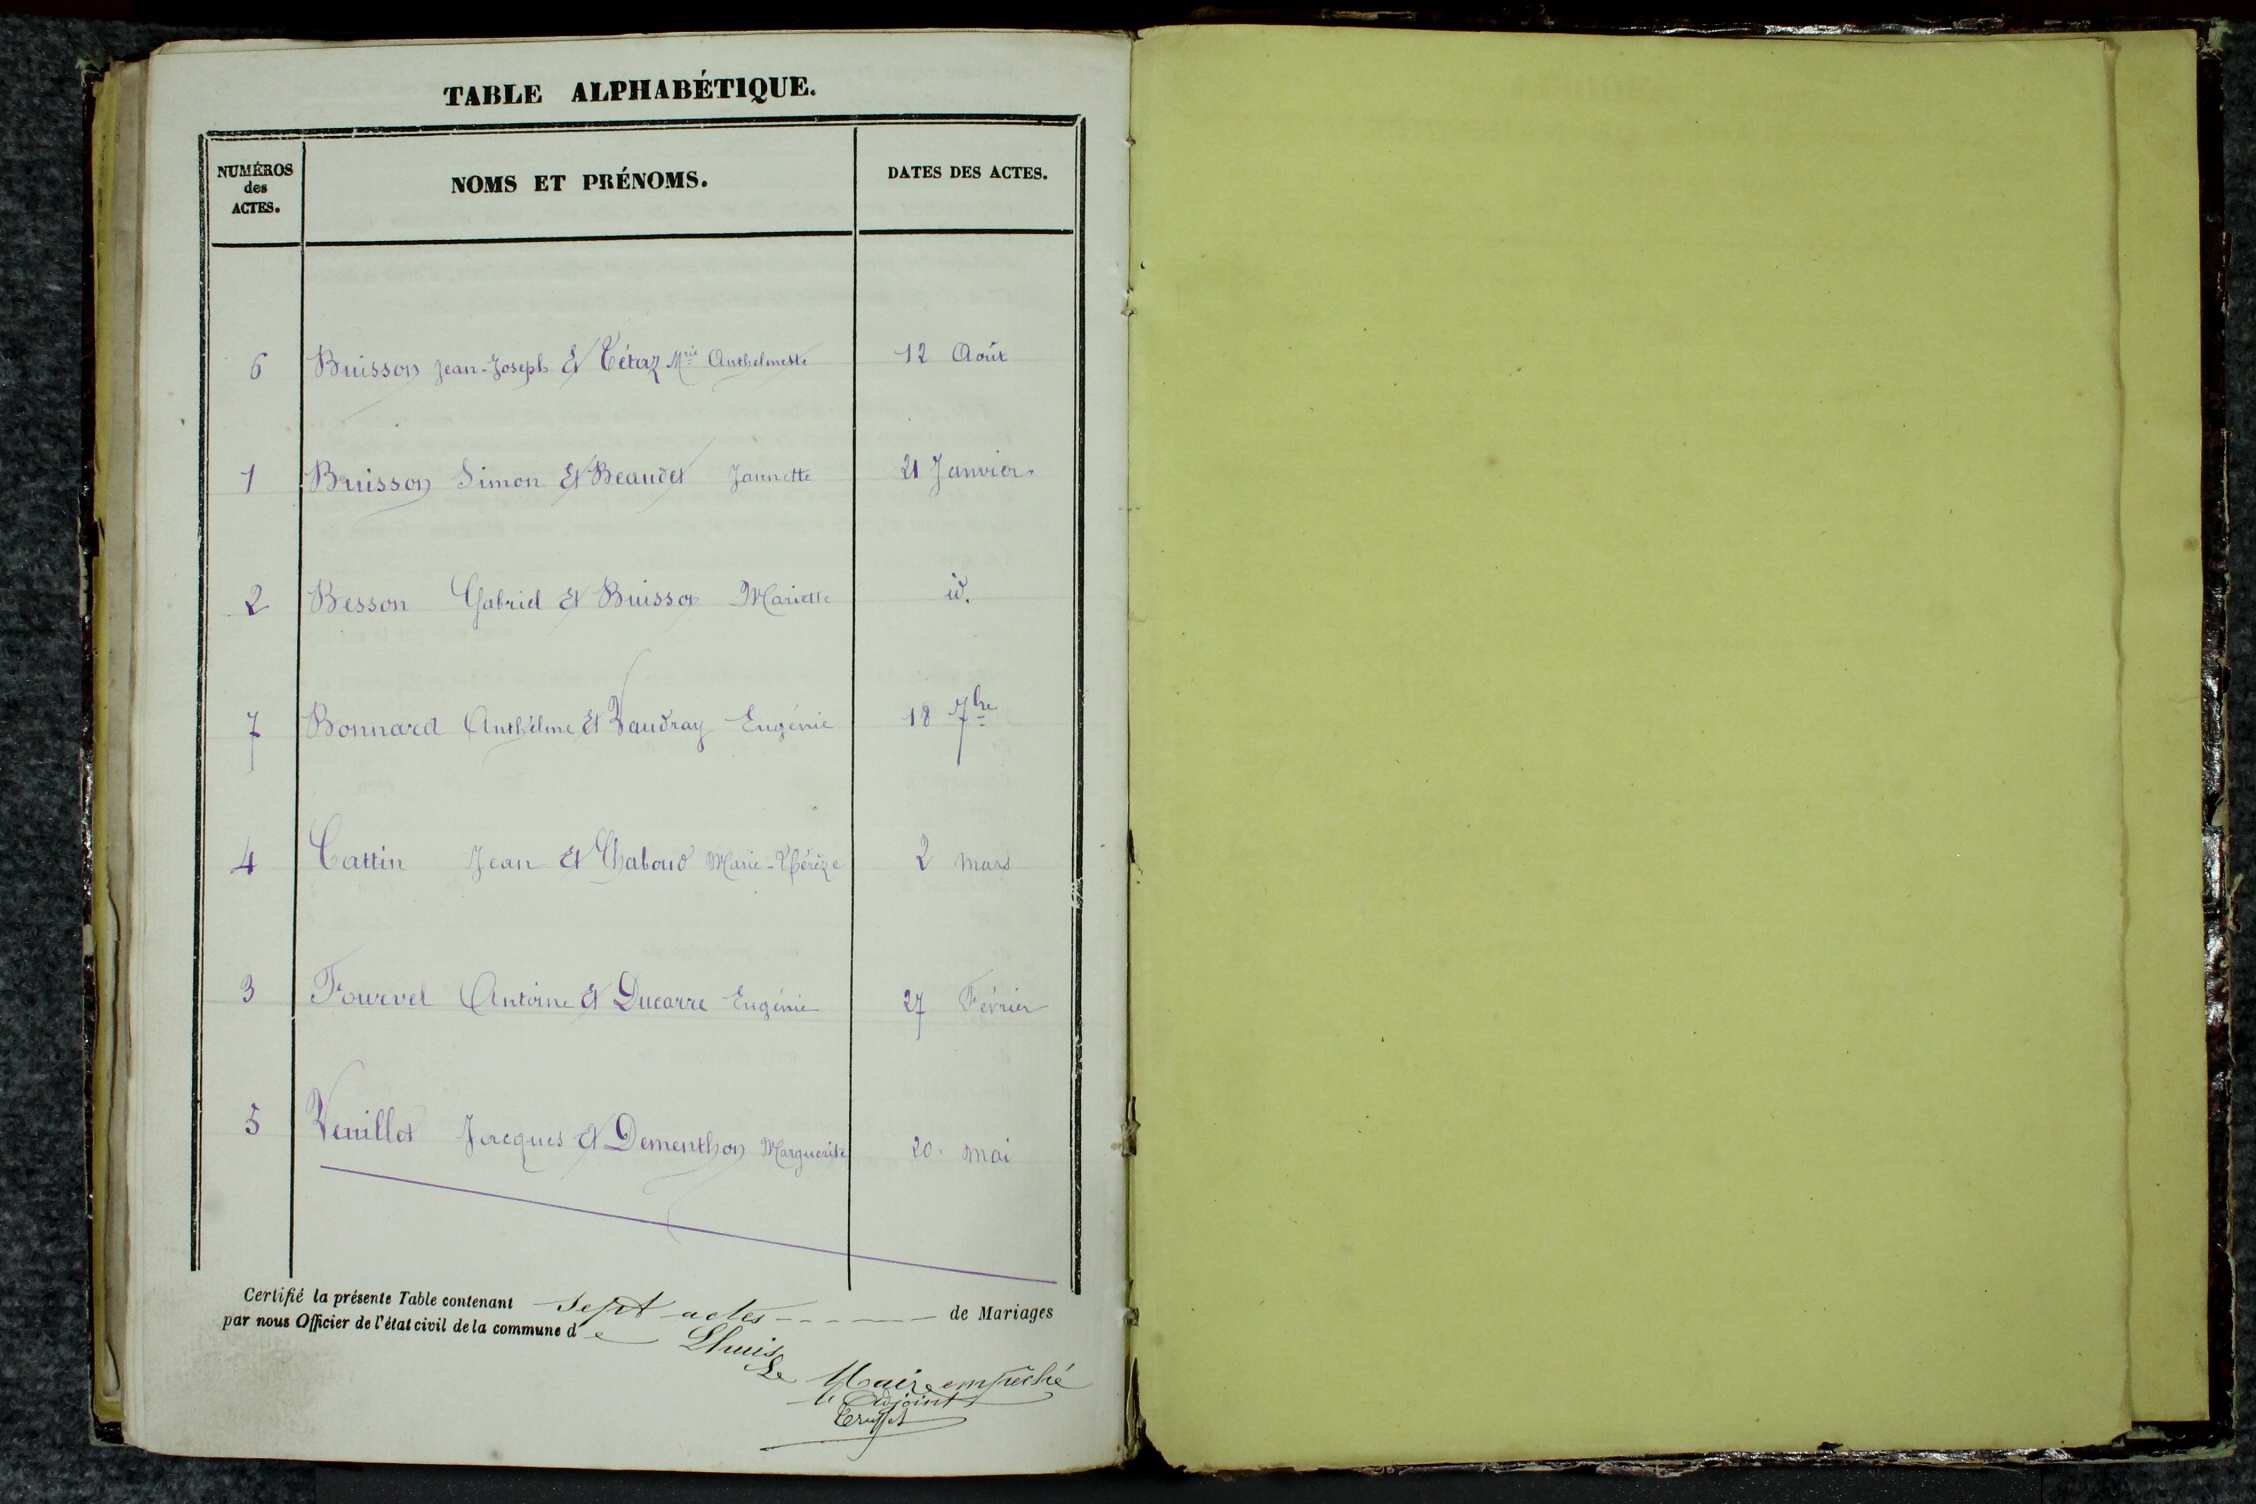 TABLE ALPHABÉTIQUE.
NUMÉROS des ACTES. NOMS ET PRÉNOMS. DATES DES ACTES.
6 Buisson Jean-Joseph Et Tétaz Mrie Anthelmette 12 Août
1 Buisson Simon Et Beaudet Jeannette 21 Janvier.
2 Besson Gabriel Et Buisson Mariette id.
7 Bonnard Anthelme Et Vaudray Eugénie 18 7bre
4 Cattin Jean Et Chaboud Marie-Thérèze 2 mars
3 Fourvel Antoine Et Ducarre Eugénie 27 Février
5 Veuillet Jacques Et Dementhon Marguerite 20. mai
Certifié la présente Table contenant Sept actes de Mariages
par nous Officier de l'état civil de la commune de Lhuis
Le Maire empêché
l'Adjoint